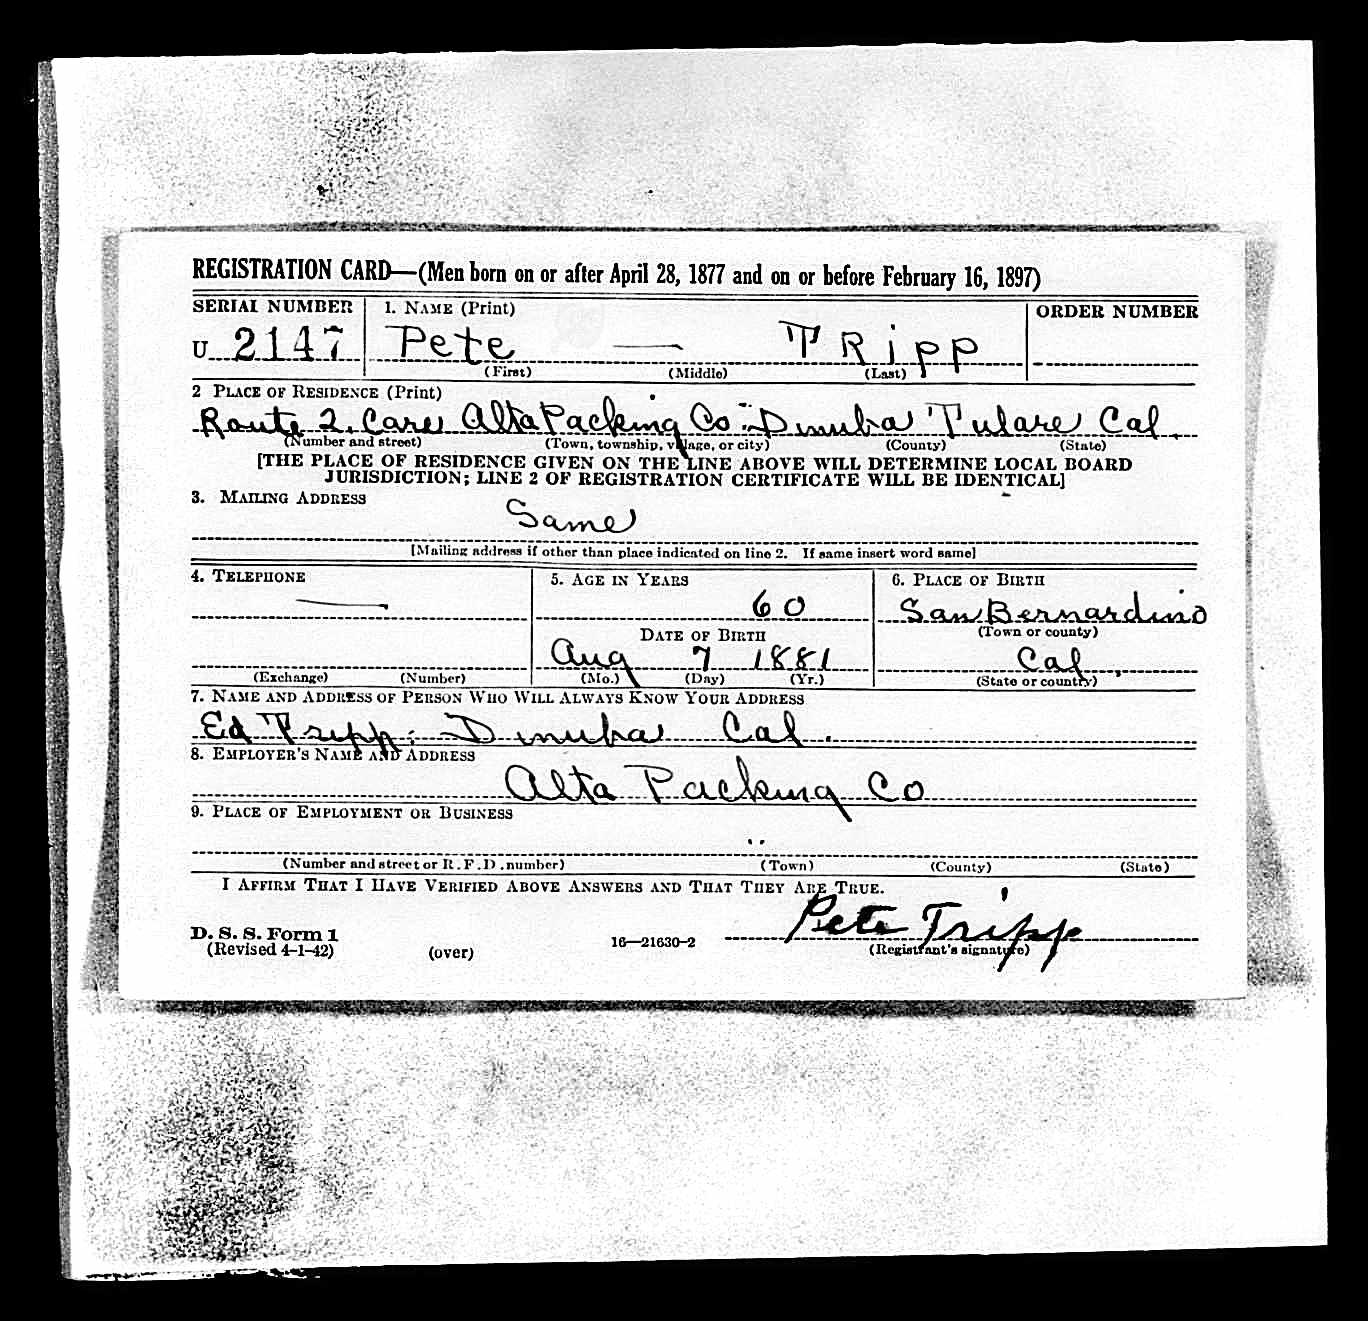 REGISTRATION CARD—(Men born on or after April 28, 1877 and on or before February 16, 1897)
SERIAL NUMBER 1. NAME (Print) ORDER NUMBER
U 2147 Pete — Tripp
(First) (Middle) (Last)
2 PLACE OF RESIDENCE (Print)
Route 2, Care Alta Packing Co. Dinuba Tulare Cal.
(Number and street) (Town, township, village, or city) (County) (State)
[THE PLACE OF RESIDENCE GIVEN ON THE LINE ABOVE WILL DETERMINE LOCAL BOARD
JURISDICTION; LINE 2 OF REGISTRATION CERTIFICATE WILL BE IDENTICAL]
3. MAILING ADDRESS
Same
[Mailing address if other than place indicated on line 2. If same insert word same]
4. TELEPHONE 5. AGE IN YEARS 6. PLACE OF BIRTH
— 60 San Bernardino
DATE OF BIRTH (Town or county)
Aug 7 1881 Cal.
(Exchange) (Number) (Mo.) (Day) (Yr.) (State or country)
7. NAME AND ADDRESS OF PERSON WHO WILL ALWAYS KNOW YOUR ADDRESS
Ed Tripp. Dinuba Cal.
8. EMPLOYER'S NAME AND ADDRESS
Alta Packing Co
9. PLACE OF EMPLOYMENT OR BUSINESS
"
(Number and street or R.F.D. number) (Town) (County) (State)
I AFFIRM THAT I HAVE VERIFIED ABOVE ANSWERS AND THAT THEY ARE TRUE.
Pete Tripp
D. S. S. Form 1
(Revised 4-1-42) (over) 16—21630-2 (Registrant's signature)